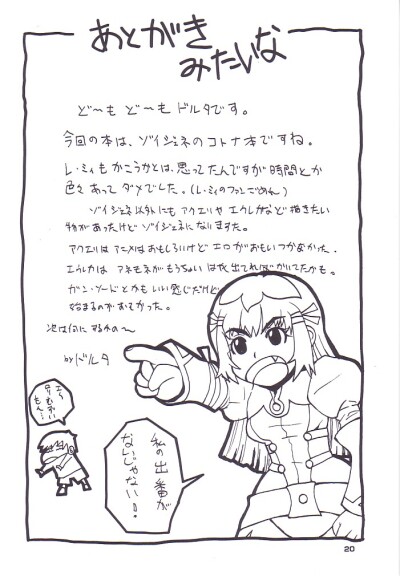 あとがき
みたいな
ど〜も ど〜も ドルタです。
今回の本は、ゾイジェネのコトナ本ですね。
レ・ミィもかこうかとは、思ってたんですが時間とか
色々あってダメでした。(レ・ミィのファンごめん)
ゾイジェネ以外にもアクエリやエウレカなど描きたい
物があったけどゾイジェネになりました。
アクエリはアニメはおもしろいけどエロがおもいつかなかった。
エウレカはアネモネがもうちょいはやく出てればかいてたかも。
ガン・ソードとかもいい感じだけど
始まるのがおそかった。
次は何にするかの〜
byドルタ
え〜
もん…
私の出番が
ないじゃない!
20